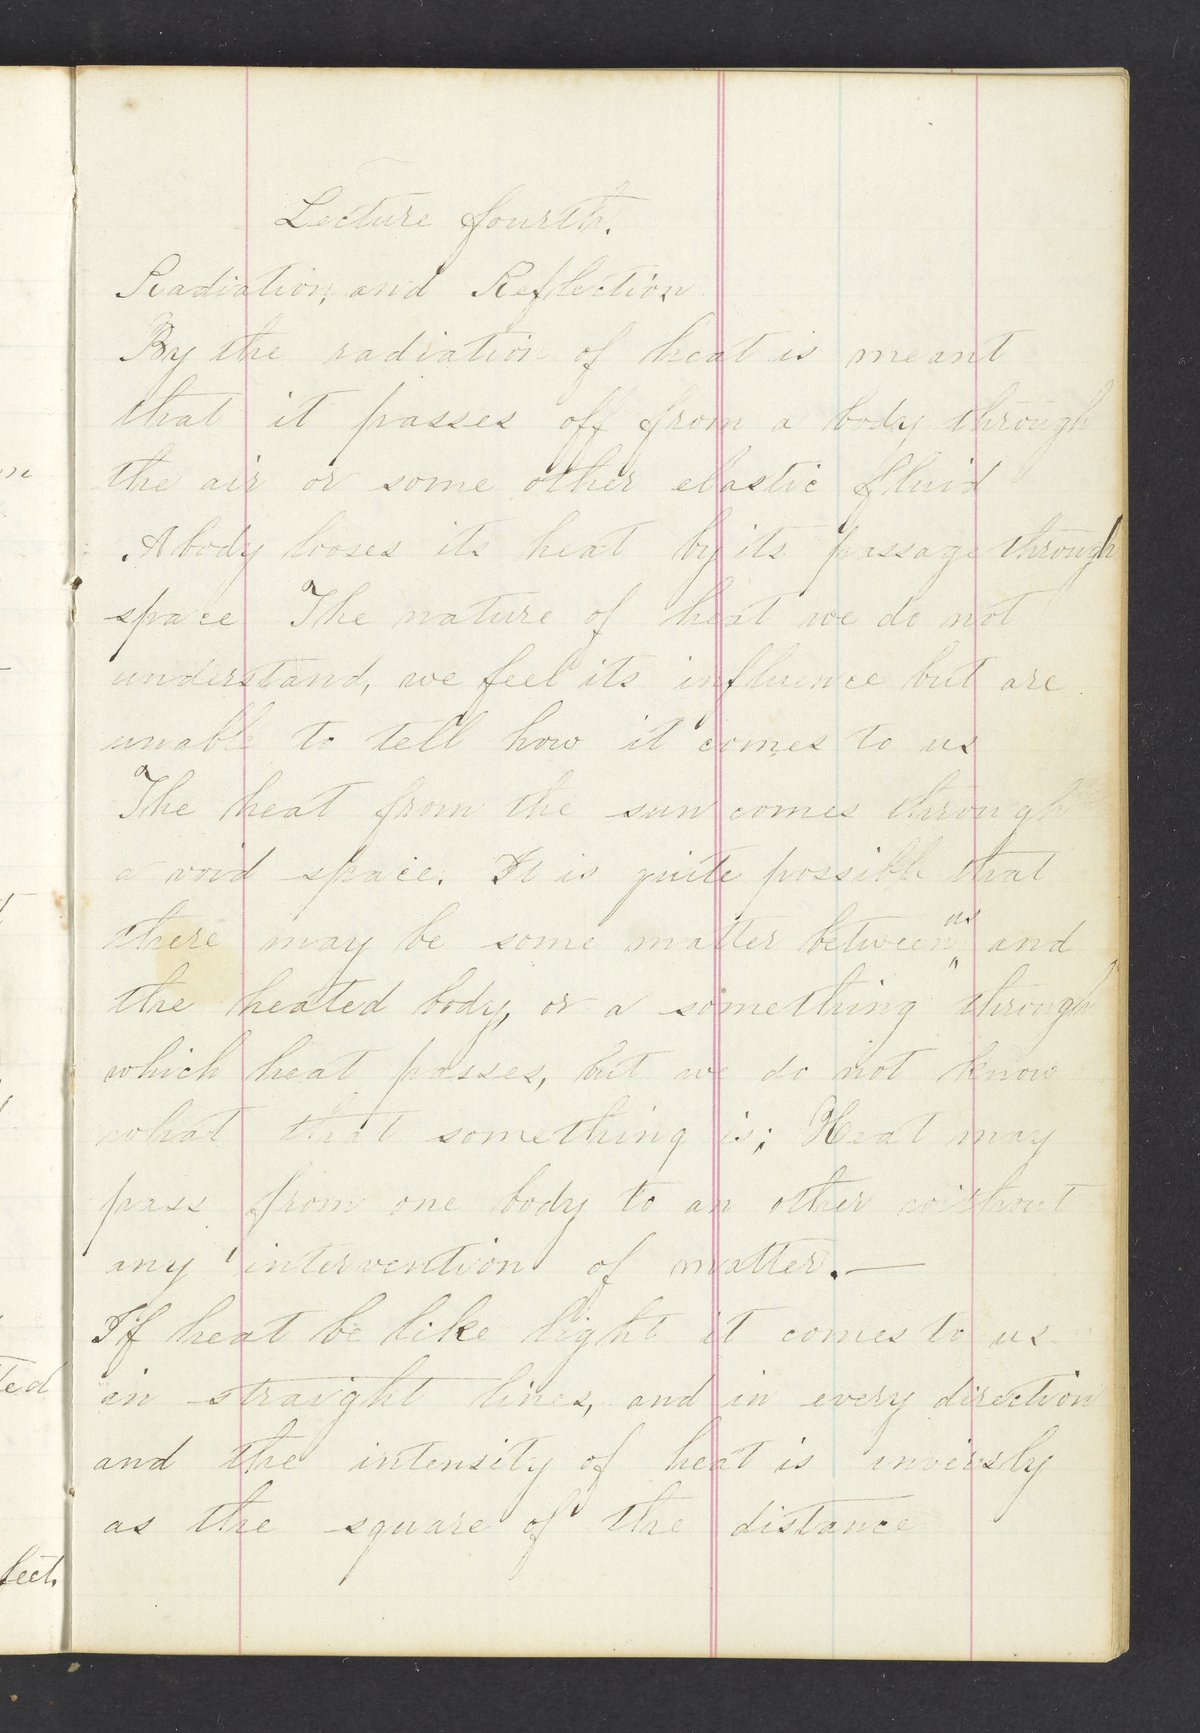 Lecture fourth.
Radiation, and Reflection
By the radiation of heat is meant
that it passes off from a body through
the air or some other elastic fluid
A body looses its heat by its passage through
space The nature of heat we do not
understand, we feel its influence but are
unable to tell how it comes to us
The heat from the sun comes through
a void space. It is quite possible that
there may be some matter between us and
the heated body, or a something through
which heat passes, but we do not know
what that something is; Heat may
pass from one body to an other without
any intervention of matter.—
If heat be like light it comes to us
in straight lines, and in every direction
and the intensity of heat is inversly
as the square of the distance
ted
lect.